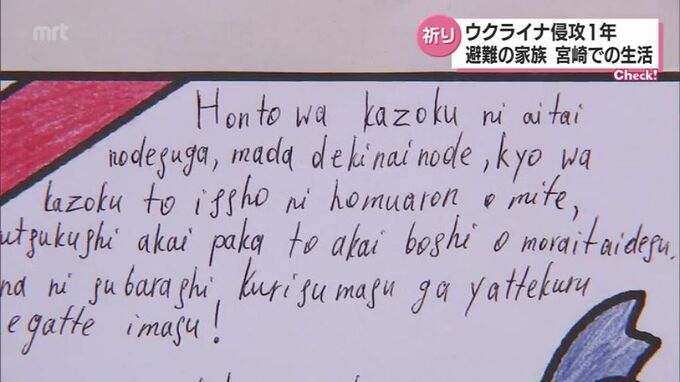 mrt
祈り
ウクライナ侵攻1年
避難の家族 宮崎での生活
Check!
Honto wa kazoku ni aitai
nodesuga, mada dekinainode, kyo wa
kazoku to issho ni homuaron o mite,
utsukushi akai paka to akai boshi o moraitaidesu.
na ni subarashi kurisumasu ga yattekuru
egatte imasu!